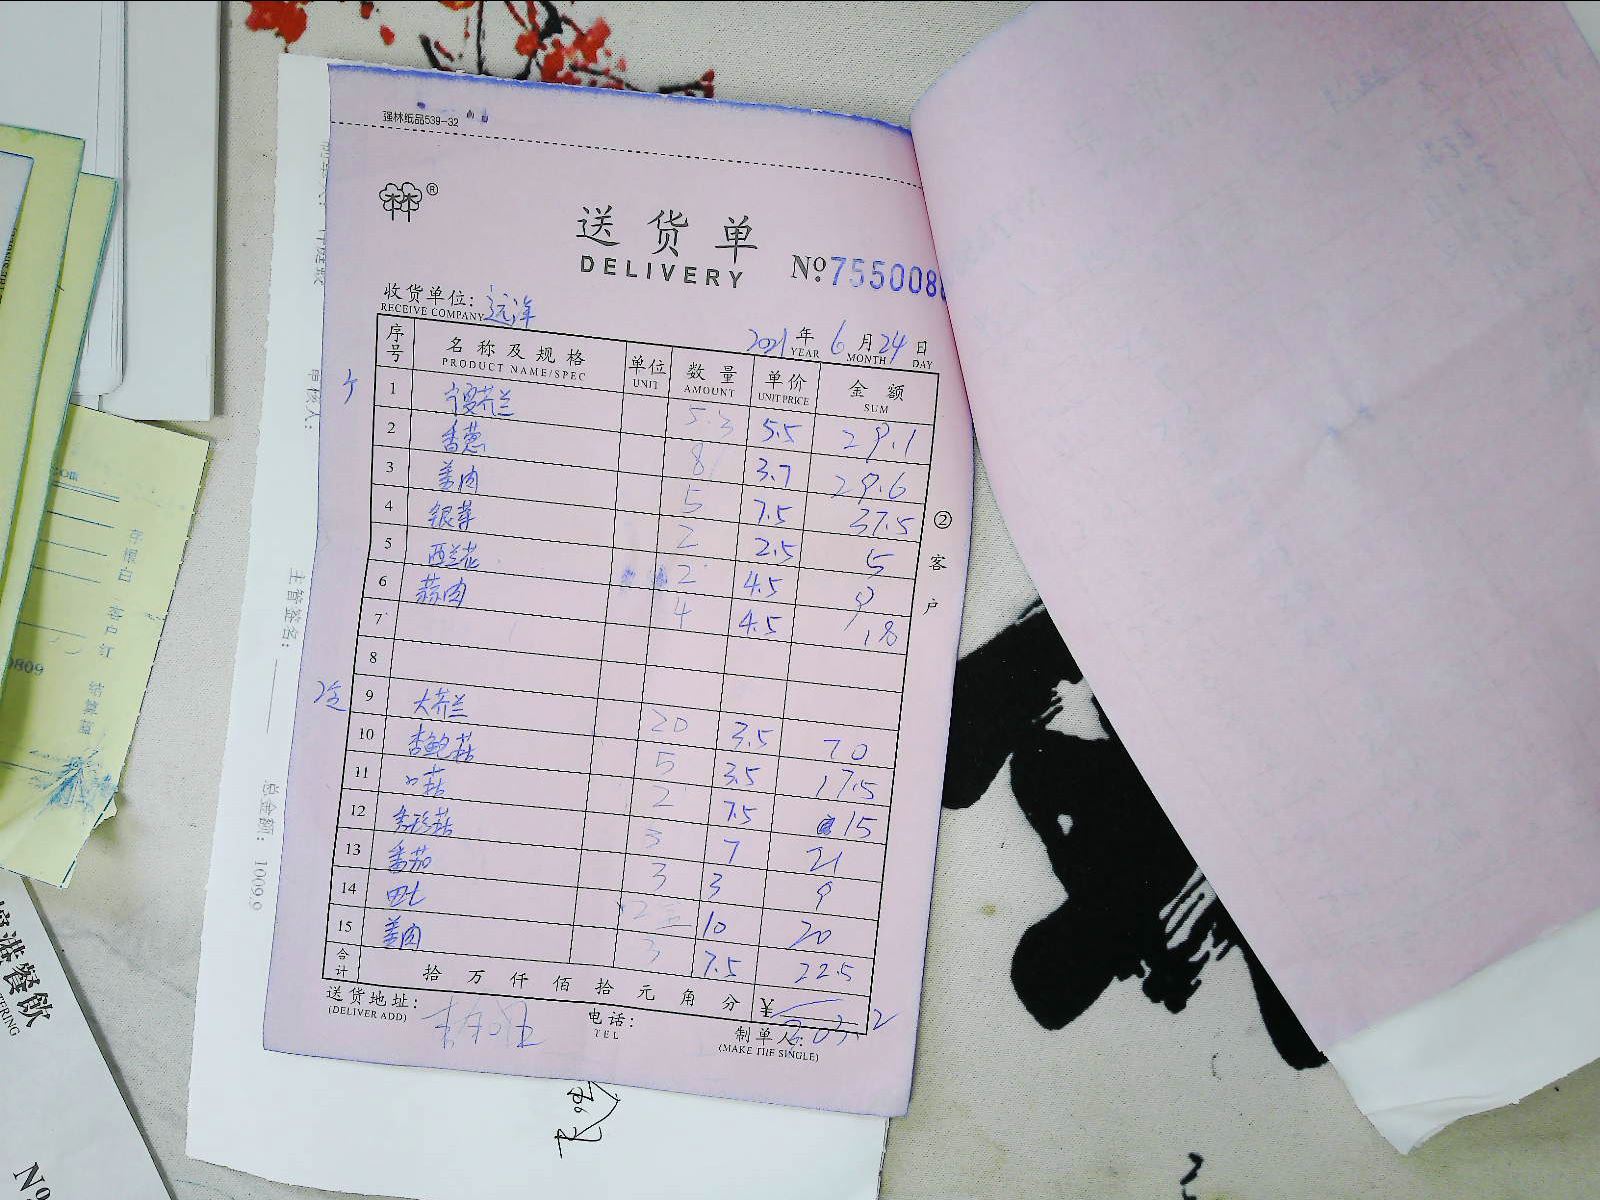 强林纸品539-32
送货单
DELIVERY
№ 755008
收货单位: 远洋
RECEIVE COMPANY
2021 年 6 月 24 日
YEAR MONTH DAY
序号 名称及规格 单位 数量 单价 金额
PRODUCT NAME/SPEC UNIT AMOUNT UNIT PRICE SUM
1 芥兰 5.3 5.5 29.1
2 香葱 8 3.7 29.6
3 姜肉 5 7.5 37.5
4 银芽 2 2.5 5
5 西兰花 2 4.5 9
6 蒜肉 4 4.5 18
7
8
9 大芥兰 20 3.5 70
10 杏鲍菇 5 3.5 17.5
11 口菇 2 7.5 15
12 3 7 21
13 番茄 3 3 9
14 2 10 20
15 姜肉 3 7.5 22.5
合计 拾 万 仟 佰 拾 元 角 分 ¥
送货地址:
(DELIVER ADD)
电话:
TEL
制单人:
(MAKE THE SINGLE)
②客户
主管签名:
总金额: 1009.9
审核人:
0809
餐飲
№